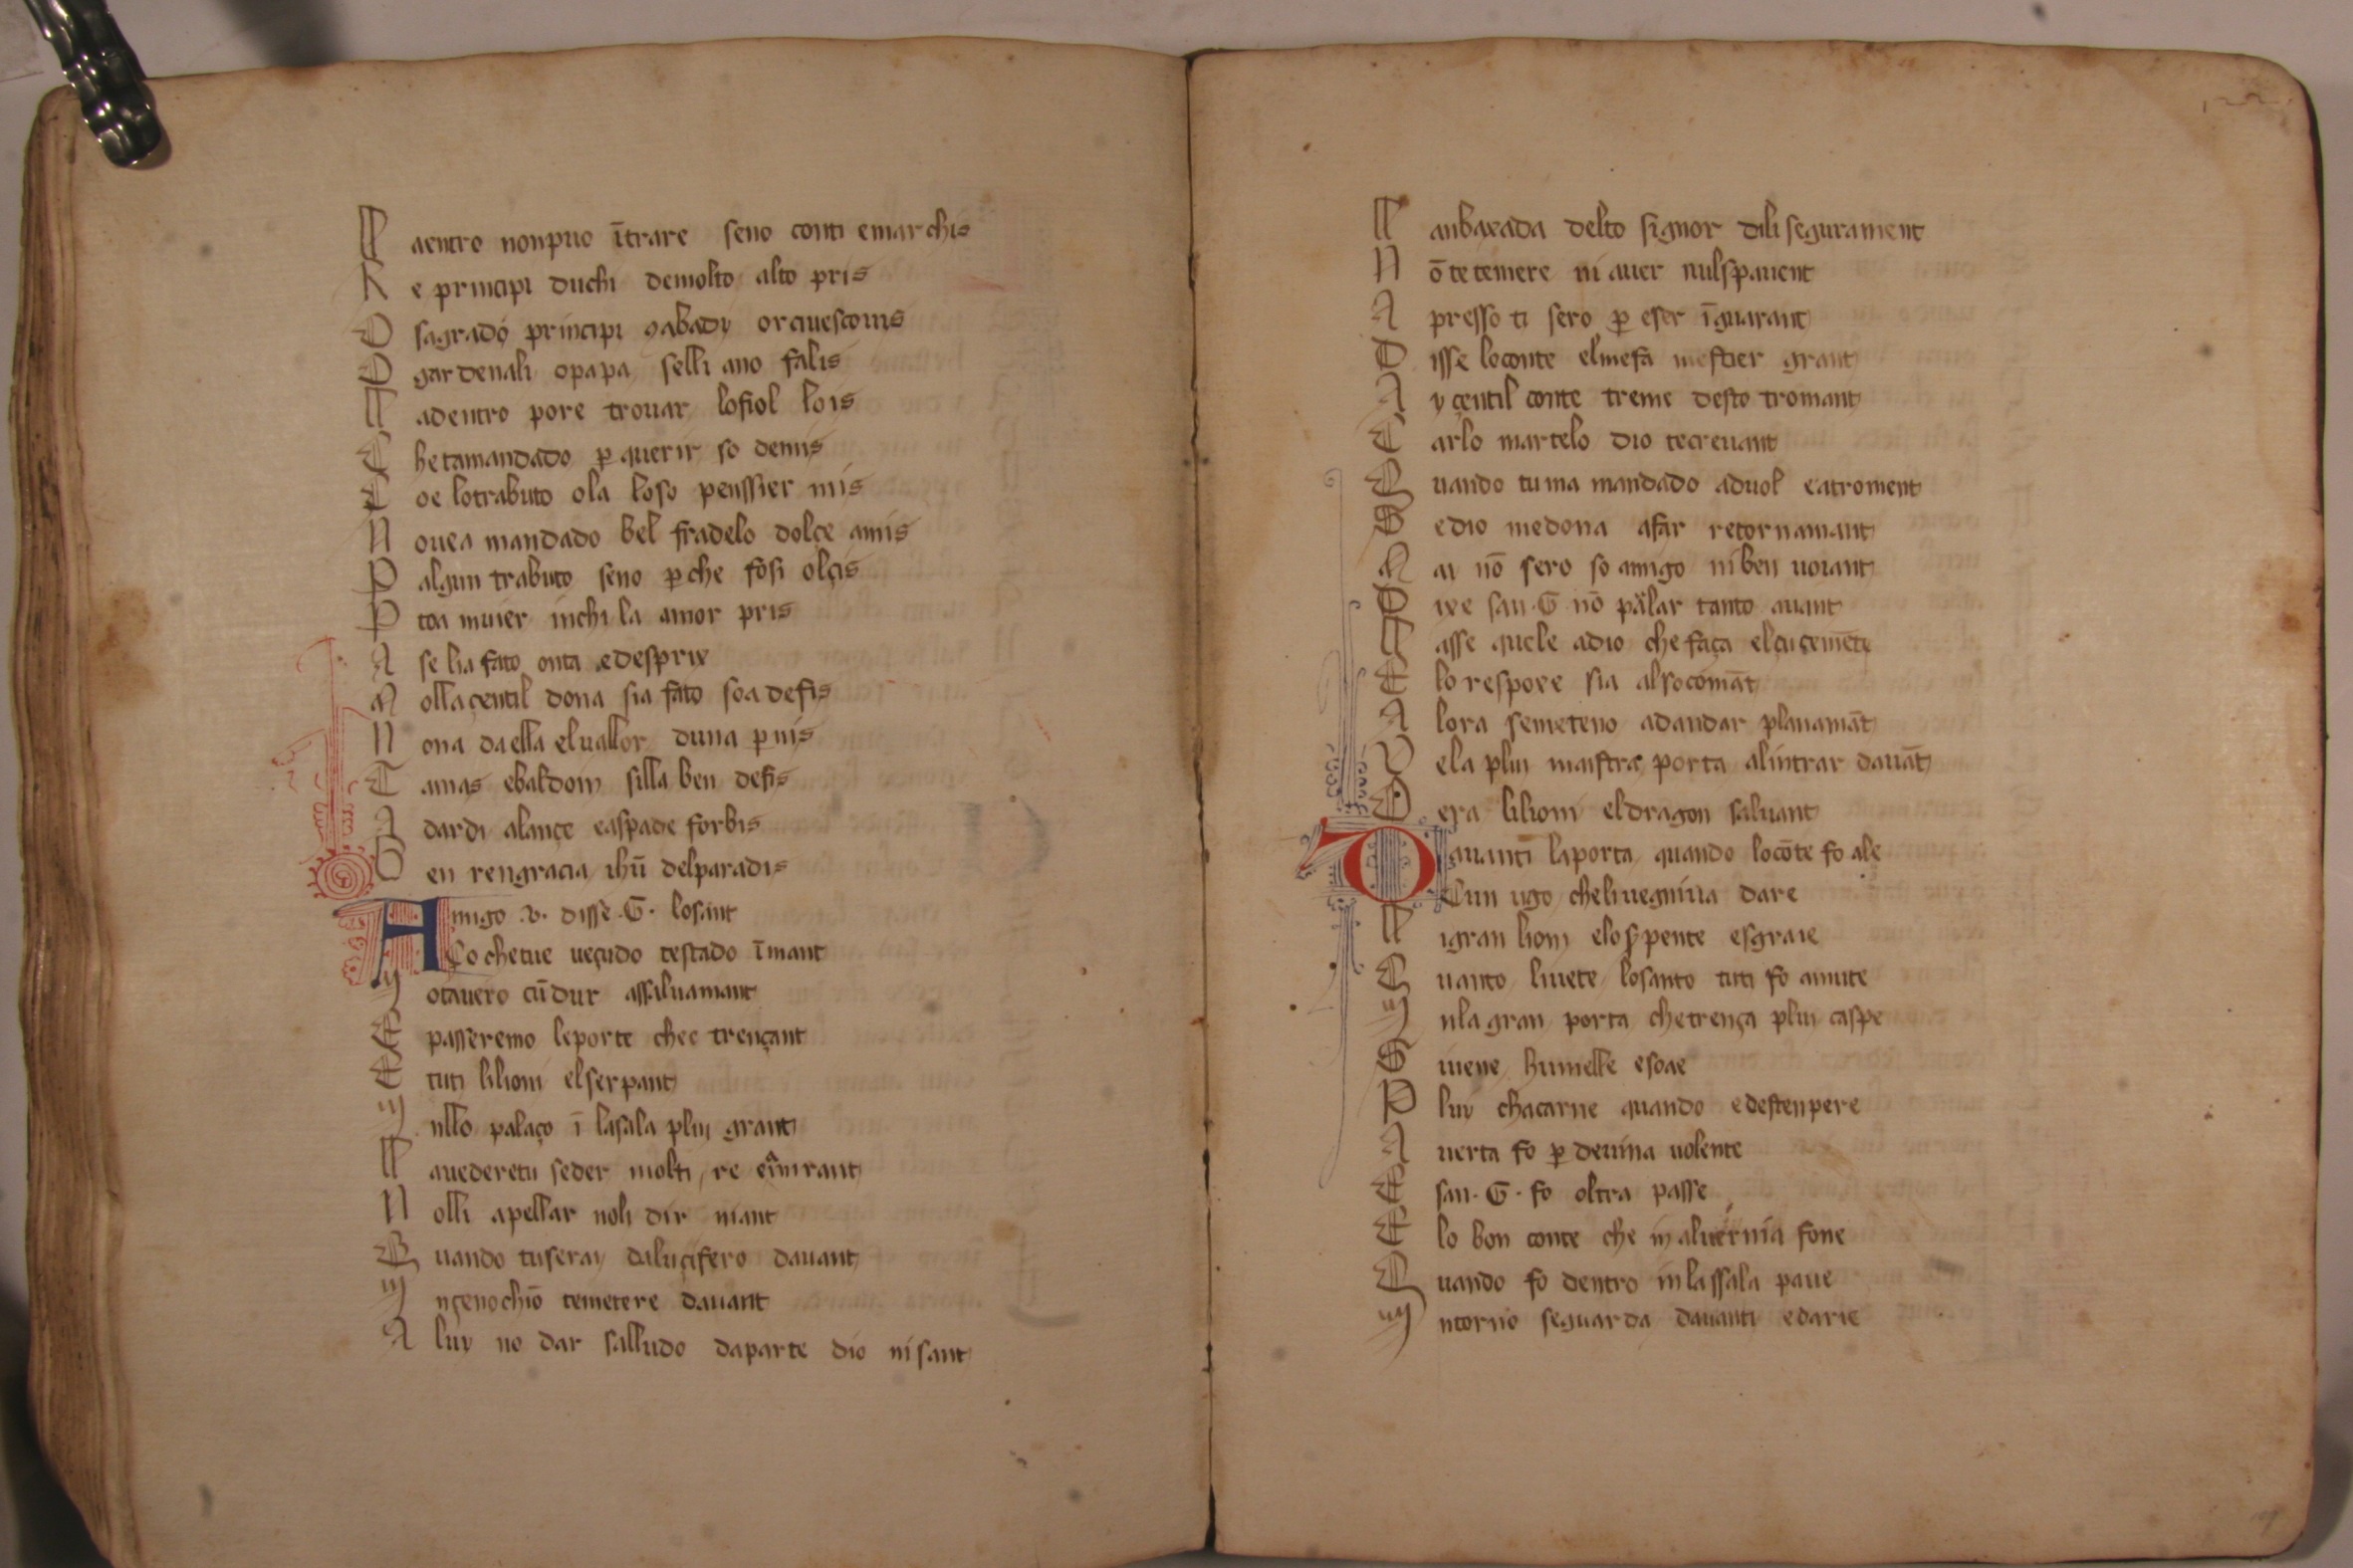 L aentro non puo ītrare seno conti emarchis
R e principi duchi demolto alto pris
O sagrado principi 9abady orciuescouis
O gardenali opapa selli ano falis
L adentro pore trouar lofiol lois
C hetamandado ꝑ querir so demis
C oe lotrabuto ola loso penssier mis
N ouea mandado bel fradelo dolçe amis
P algun trabuto seno ꝑche fosi olçis
P toa muier inchi la amor pris
A se lia fato onta edesprix
M olla çentil dona sia fato soa defis
N ona daella eluallor duna ꝑnis
T amas ebaldoin silla ben defis
A dardi alançe easpade forbis
B en rengracia ihū delparadis
A migo .v. disse .G. losant
Co chetue ueçudo testado īmant
I otauero cūdur assaluamant
E passeremo leporte chee trençant
E tuti lilioni elserpant
I nllo palaço ī lasala plui grant
L auederetu seder molti re
N olli apellar noli dir niant
Q uando tuseray daluçifero dauant
I nçenochiō temetere dauant
A luy no dar salludo daparte dio ni sant
L anbaxada delto signor dili segurament
N ō te temere ni auer nulspauent
A presso ti sero ꝑ eser īguarant
D isse loconte elmefa mestier grant
A y çentil conte treme desto tromant
C arlo martelo dio tecreuant
Q uando tuma mandado aduol eatroment
S edio medona afar retornamant
M ai nō sero so amigo ni ben uoiant
D ixe san .G. nō parlar tanto auant
L asse quele adio che faça elçuçemēte
E lo respoxe sia alsocomāt
A lora semeteno adandar planamāt
V ela plui maistra porta alintrar dauāt
O era lilioni eldragon saluant
D auanti laporta quando locōte fo ale
Cun ugo cheliuegniua dare
L igran lioni eloserpente esgraie
Q uanto liuete losanto tuti fo amute
I nla gran porta chetrença plui caspe
S iuene humelle esoae
P luy chacarne quando edestenpere
A uerta fo ꝑ deuina uolente
E san .G. fo oltra passe
E lo bon conte che in aluernia fone
Q uando fo dentro inlassala paue
I ntorno seguarda dauanti edarie